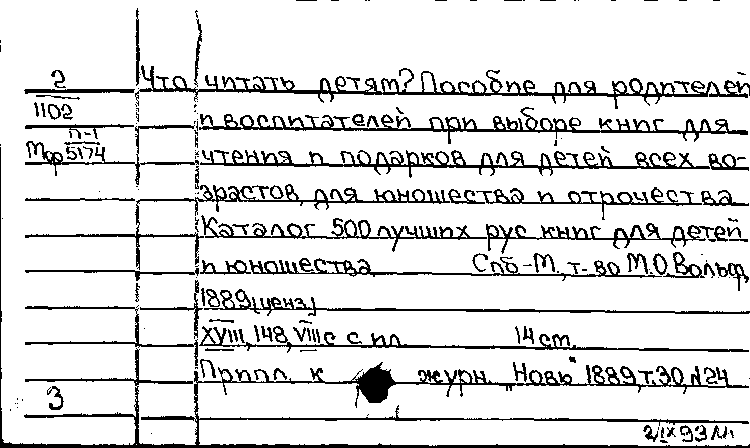 2 Что читать детям? Пособие для родителей
1102 и воспитателей при выборе книг для
п-1
Мор 5174 чтения и подарков для детей всех во-
зрастов, для юношества и отрочества
Каталог 500 лучших рус книг для детей
и юношества Спб-М., т-во М.О. Вольф,
1889 [ценз.]
XVIII, 148, VIII с с ил 14 см.
Прилл. к журн. „Новь" 1889, т.30, №24
3
2/IX 93